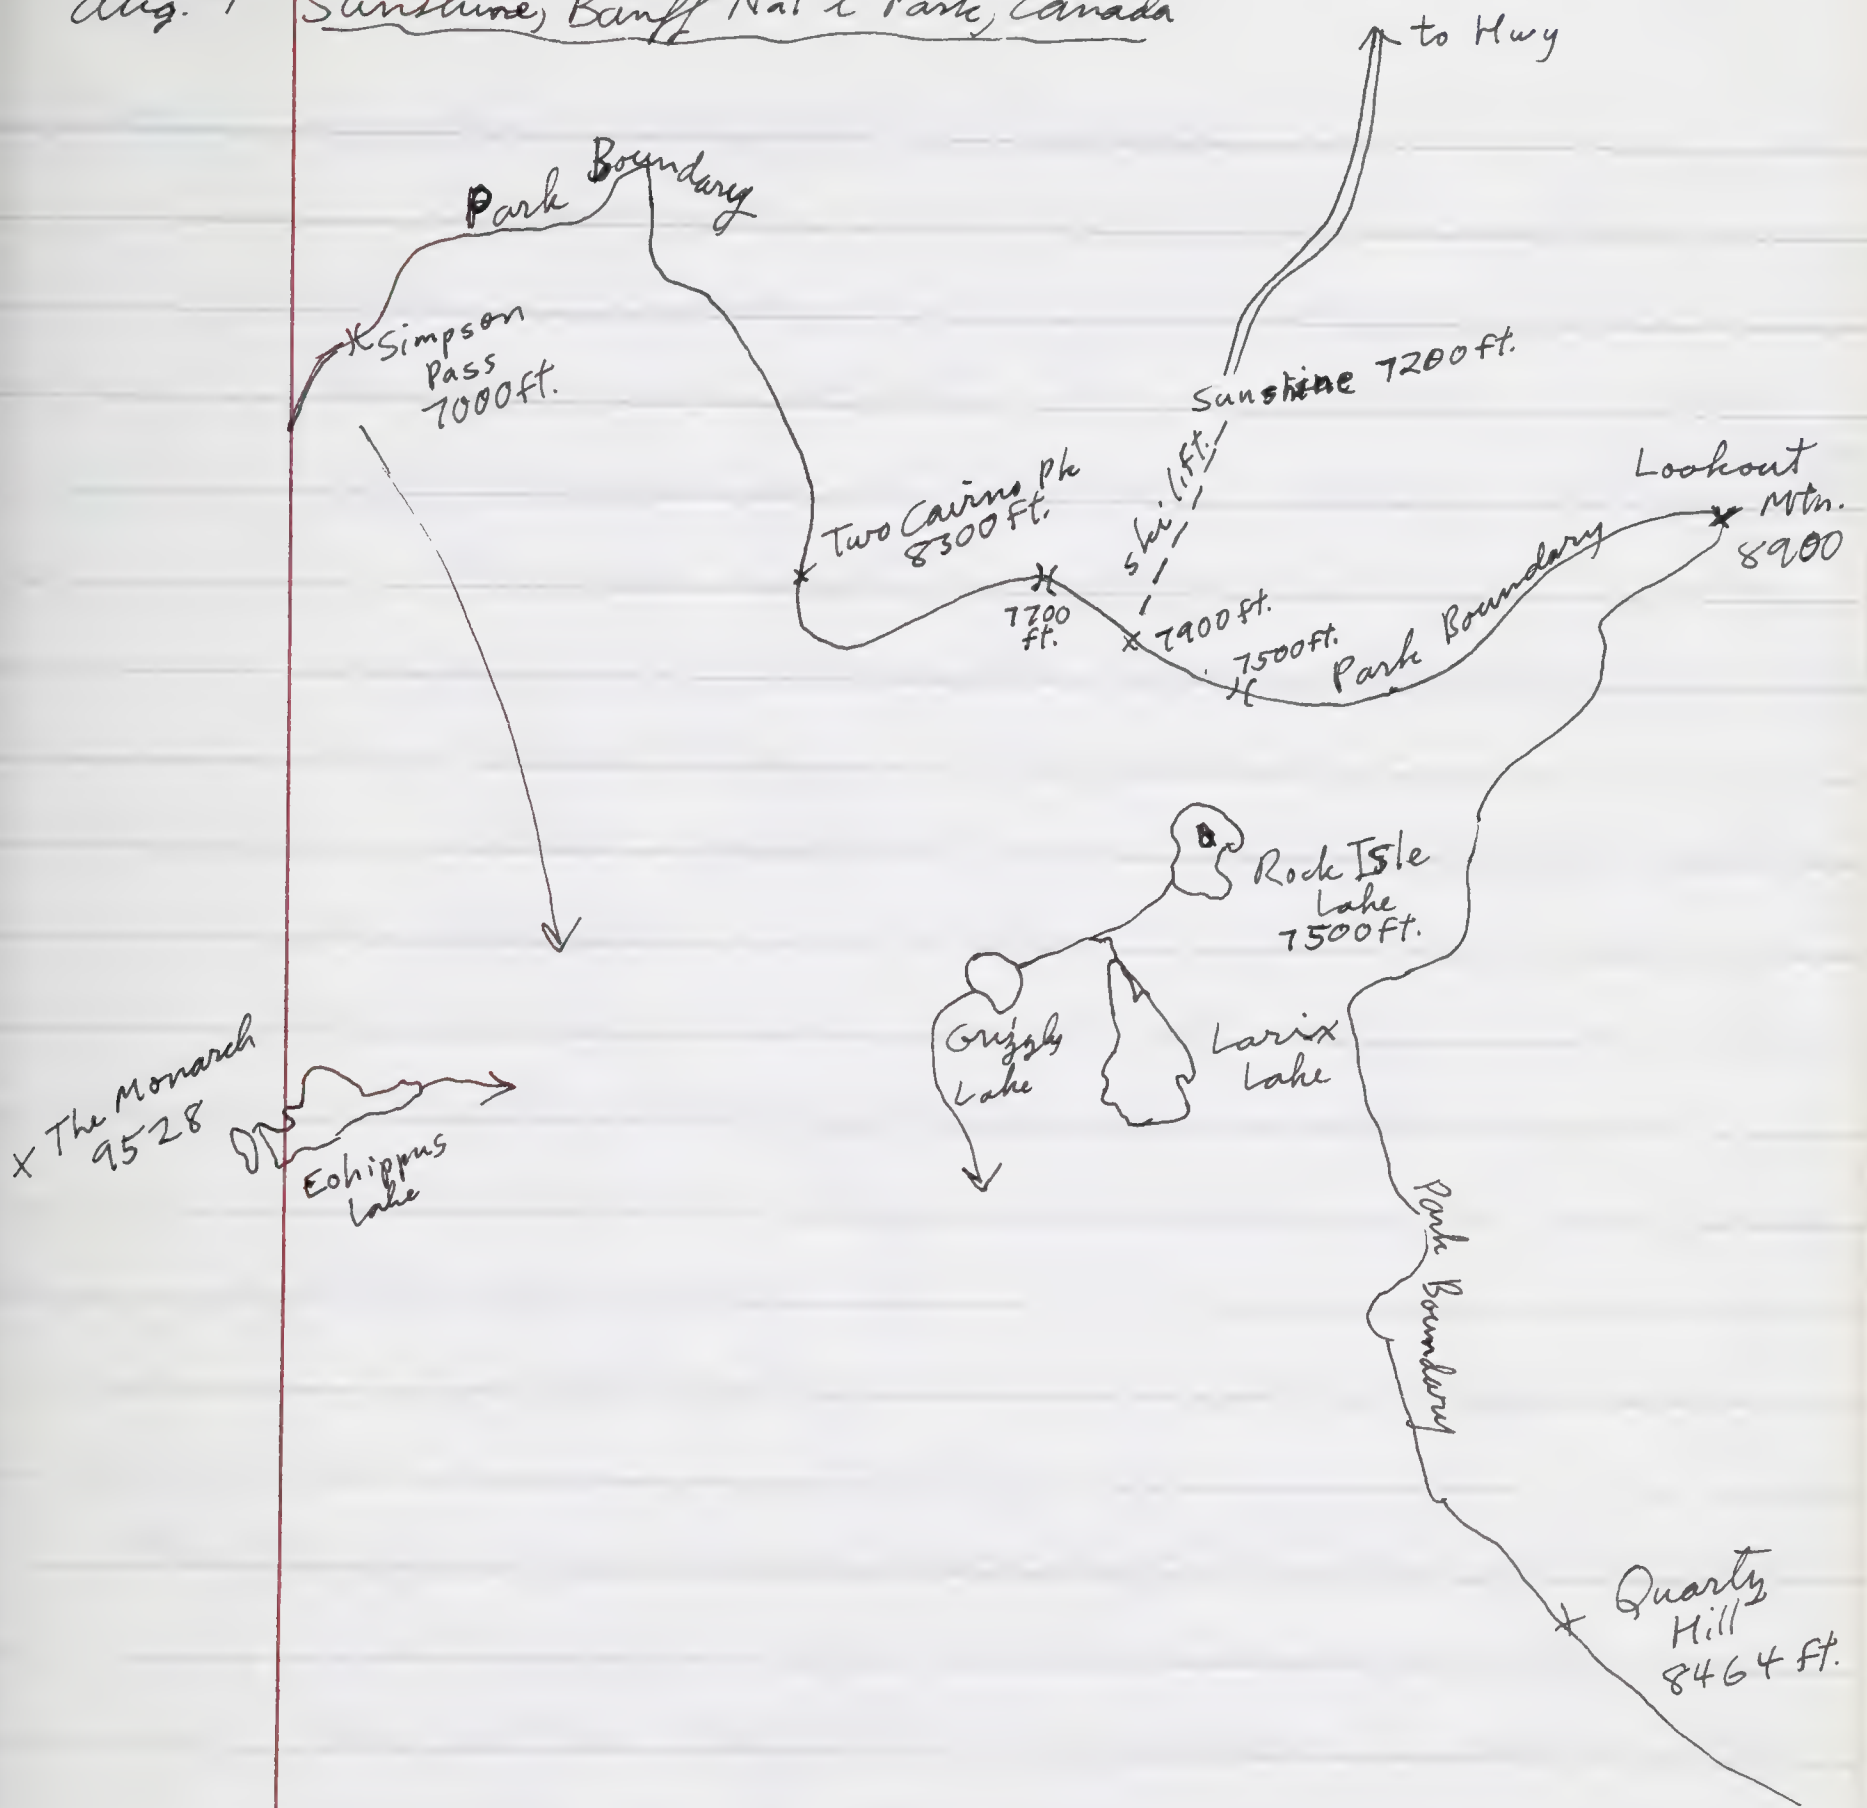 Aug.
Sunshine, Banff Nat'l Park, Canada
to Hwy
Park Boundary
Simpson
Pass
7000 ft.
Sunshine 7200 ft.
ski lift
Two Cairns Pk
8300 ft.
Lookout
Mtn.
8900
7700
ft.
7900 ft.
7500 ft.
Park Boundary
Rock Isle
Lake
7500 ft.
Grizzly
Lake
Larix
Lake
x The Monarch
9528
Eohippus
Lake
Park Boundary
Quartz
Hill
8464 ft.